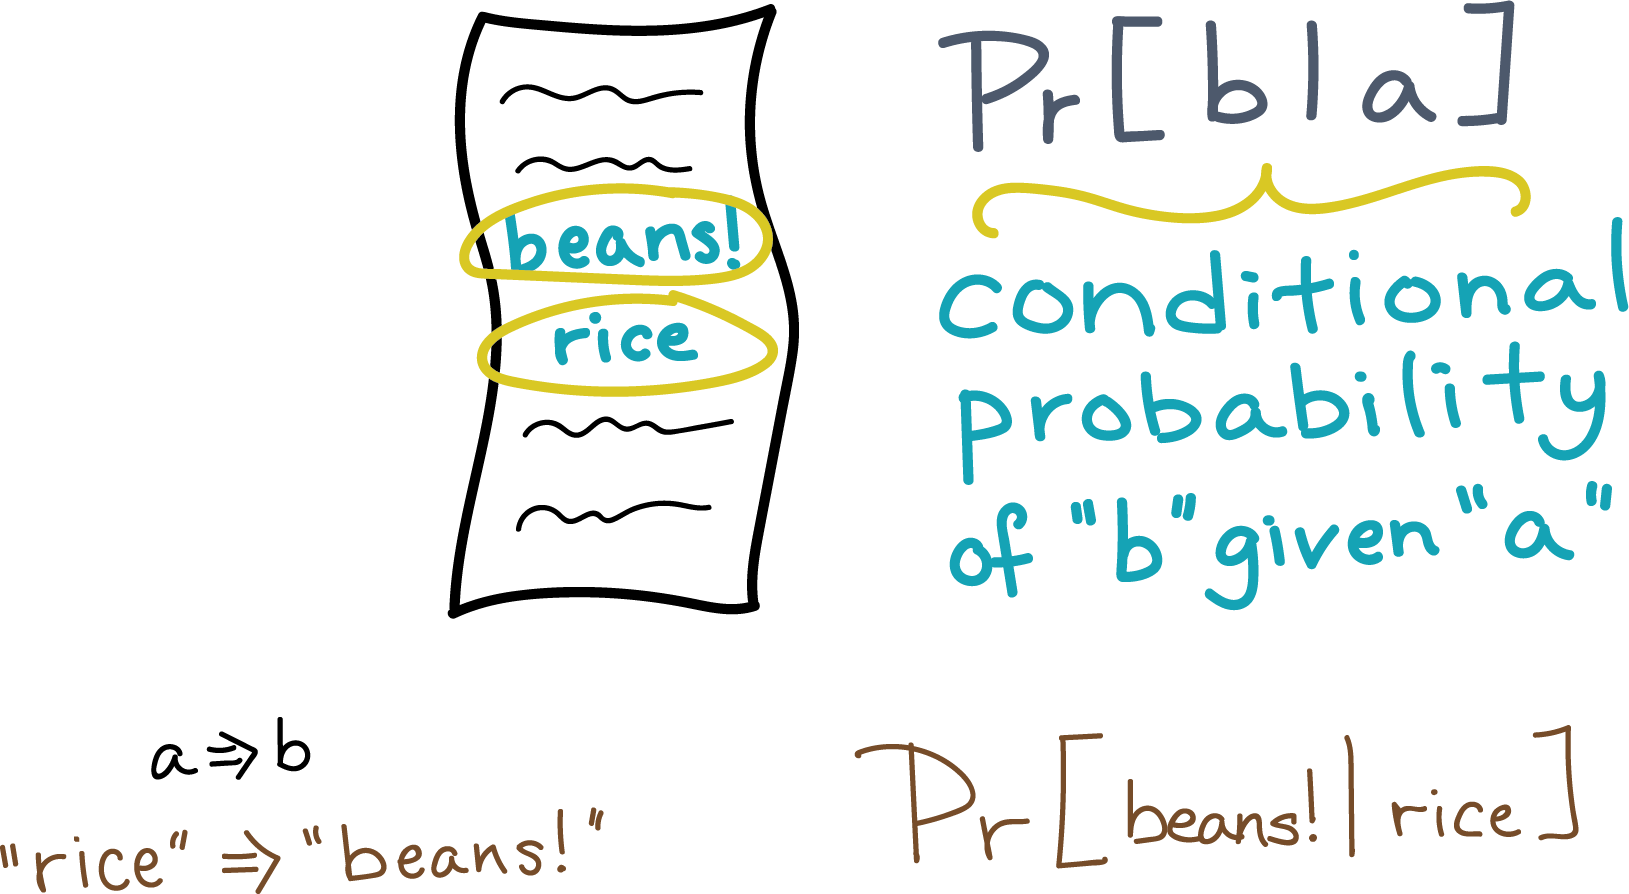 beans!
rice
Pr[b|a]
conditional
probability
of "b" given "a"
a ⇒ b
"rice" ⇒ "beans!"
Pr[beans!|rice]